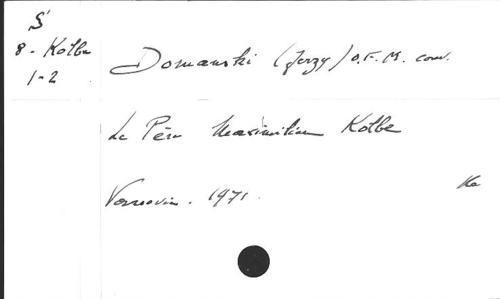 S
8 - Kolbe
1-2
Domanski (Jerzy) O.F.M. conv.
Le Père Maximilien Kolbe
Varsovie. 1971.